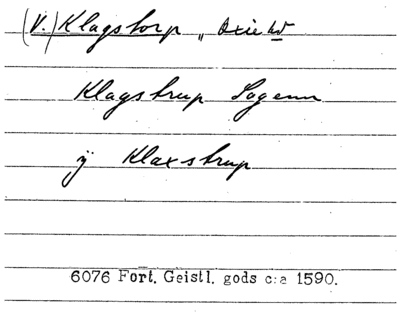 (V.) Klagstorp „ Oxie hd
Klagstrup Sogenn
ÿ Klaxstrup
6076 Fort. Geistl. gods c:a 1590.